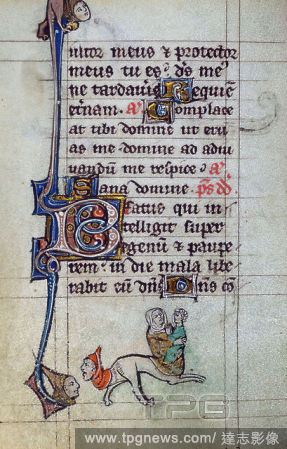 iutor meus & protector
meus tu es: ds me
ne tardaũis Requiẽ
eternam. añ Complace
at tibi domine ut eru
as me domine ad adiu
uandũ me respice. añ
Sana domine. ps dd
Beatus qui in
telligit super
egenũ & paupe
rem: in die mala libe
rabit eũ dñs Dñs cõ
TPG
www.tpgnews.com/ 達志影像